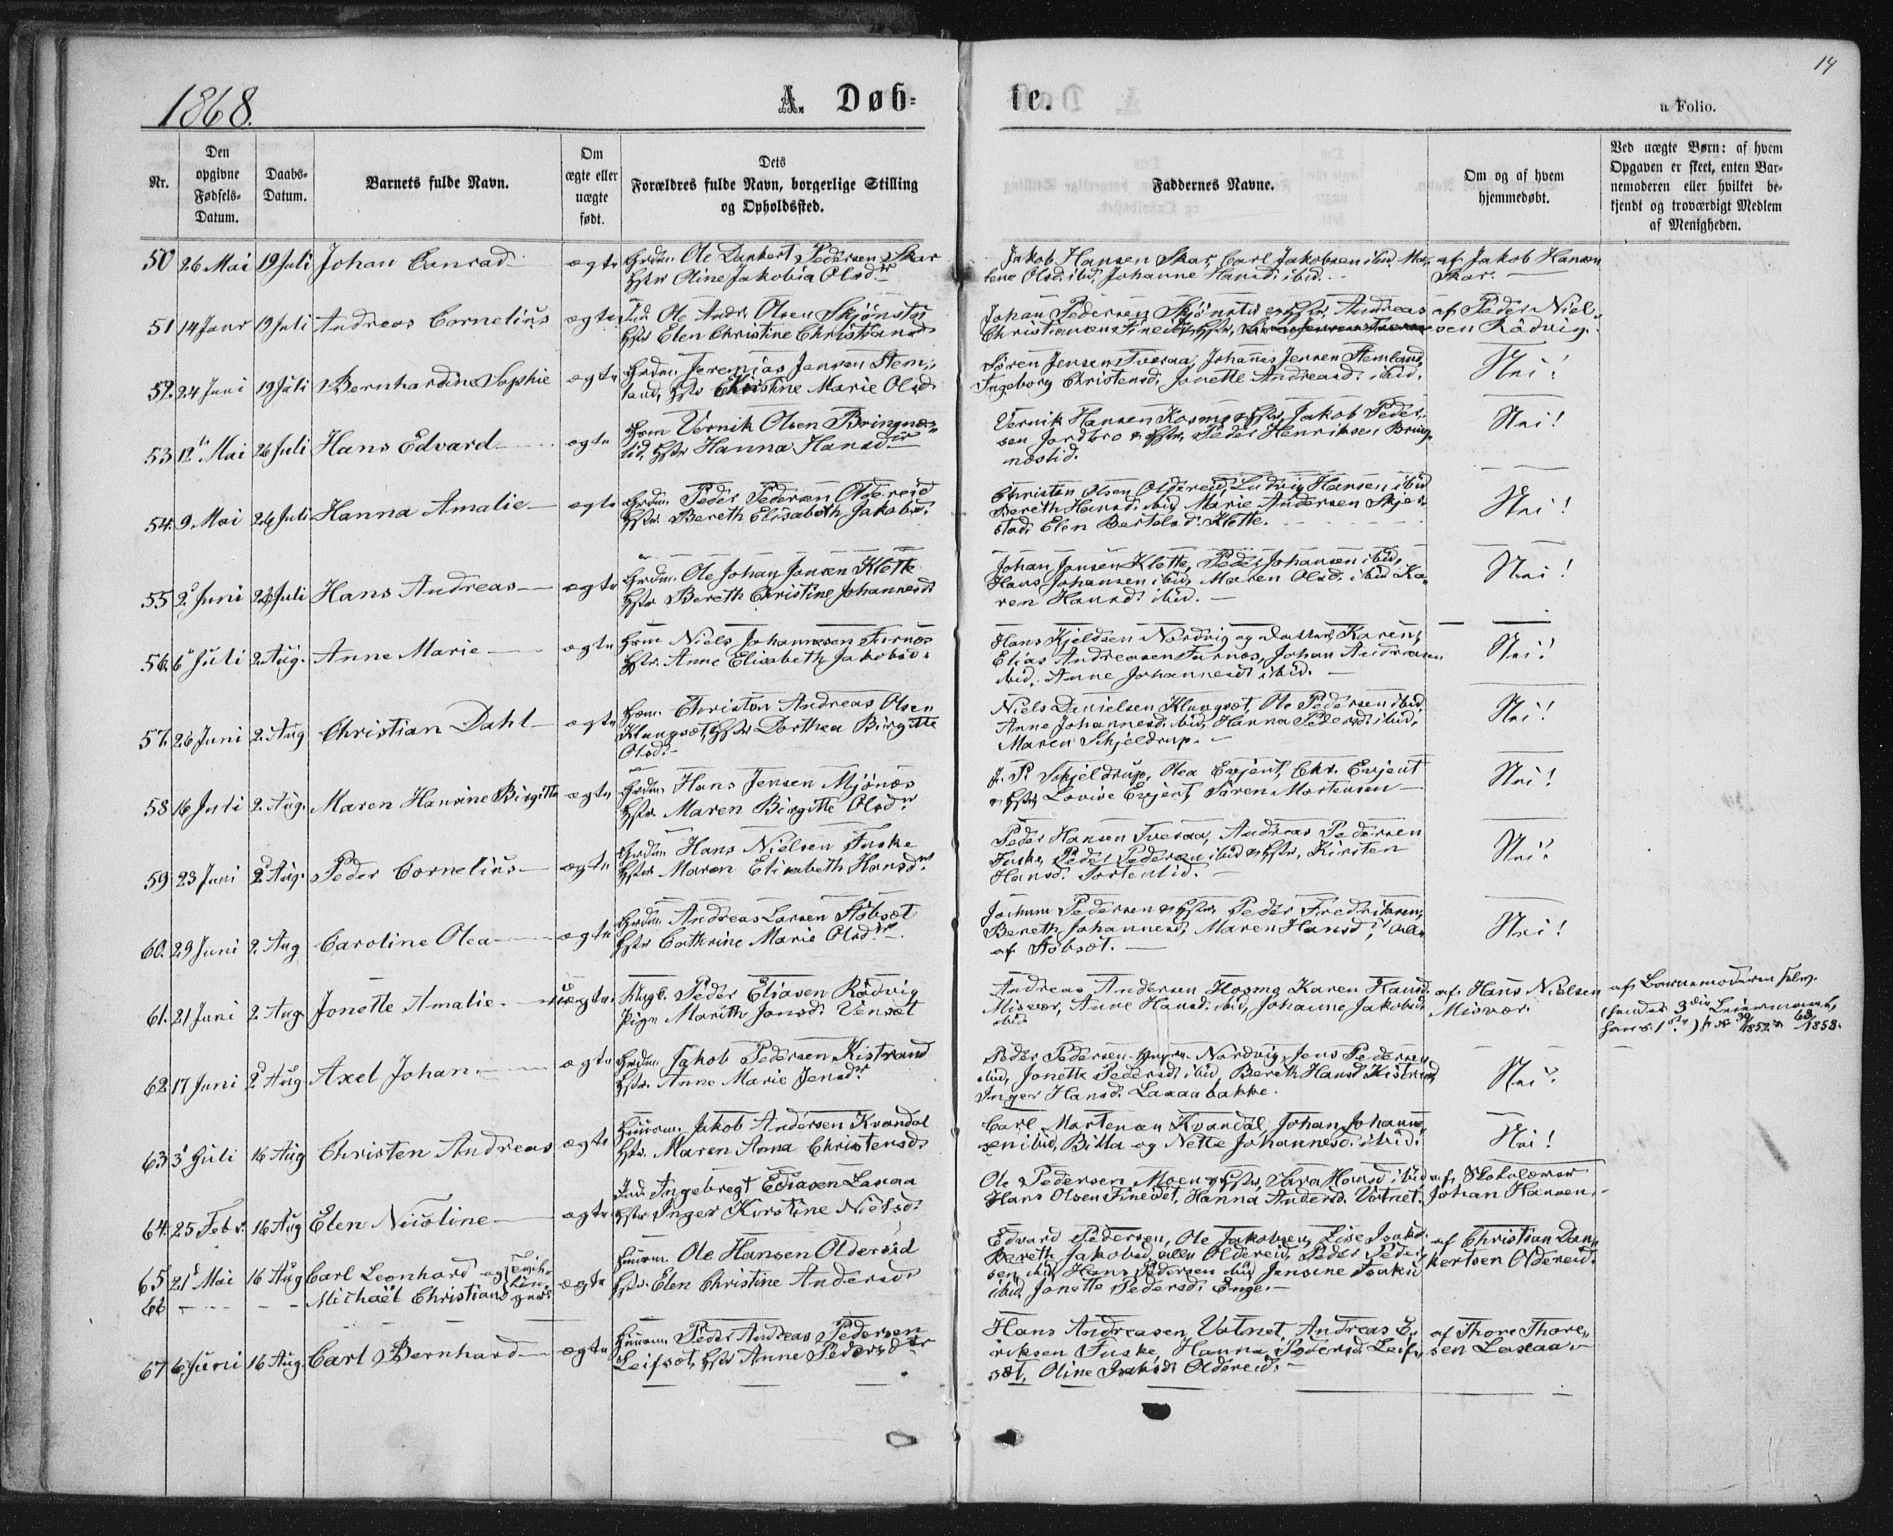 14
1868.
A. Døb=
te.
a Folio.
Nr.
Den opgivne Fødsels-Datum.
Daabs-Datum.
Barnets fulde Navn.
Om ægte eller uægte født.
Dets Forældres fulde Navn, borgerlige Stilling og Opholdssted.
Faddernes Navne.
Om og af hvem hjemmedøbt.
Ved uægte Børn: af hvem Opgaven er skeet, enten Barnemoderen eller hvilket bekjendt og troværdigt Medlem af Menigheden.
50 26 Mai 19 Juli Johan Conrad ægte Ole Dankert Pedersen Skar
Hstr Oline Jakobia Olsdr
Jakob Hansen Skar, Carl Jakobsen ibid. Ma-
lene Olsd. ibid, Johanne Hansd. ibid.
af Jakob Hansen
Skar.
51 14 Janr 19 Juli Andreas Cornelius ægte Ind. Ole Andr. Olsen Skjønstø
Hstr Elen Christine Christiansd.
Johan Pedersen Skjønstø & Hstr, Andreas
Christiansen Fineid & Hstr,
af Peder Niel-
sen Rødvig.
52. 24 Juni 19 Juli Bernhardine Sophie ægte Grdm. Jeremias Jensen Stem-
land, Hstr Christine Marie Olsd.
Søren Jensen Tveraa, Johanes Jensen Stemland,
Ingeborg Christensd. Jonette Andreasd. ibid.
Nei!
53 12 Mai 26 Juli Hans Edvard ægte Vernik Olsen Bringnes-
lid, Hstr Hanna Hansdr
Vernik Hansen Kosmo & Hstr, Jakob Peder-
sen Jordbro & Hstr, Peder Henriksen Bring-
neslid.
Nei!
54. 9 Mai 26 Juli Hanna Amalie ægte Grdm. Peder Pedersen Oldereid
Hstr. Bereth Elisabeth Jakobsd.
Christen Olsen Oldereid, Ludvig Hansen ibid
Bereth Hansd. ibid, Marie Andersen Skjer-
stad, Elen Bertelsd. Klette.
Nei!
55 2 Juni 26 Juli Hans Andreas ægte Grdm. Ole Johan Jonsen Klette
Hstr Bereth Christine Johannesd.
Johan Jonsen Klette, Peder Johansen ibid,
Hans Johansen ibid, Maren Olsd. ibid Ka-
ren Hansd. ibid.
Nei!
56. 6 Juli 2. Aug. Anne Marie ægte Niels Johannesen Furnes
Hstr. Anne Elisabeth Jakobsd.
Hans Kjeldsen Nordvig og Datter Karen,
Elias Andreasen Furnes, Johan Andreasen
ibid, Anne Johannesd. ibid.
Nei!
57. 26 Juni 2. Aug Christian Dahl ægte Christen Andreas Olsen
Klungset, Hstr Dorthea Birgitte
Olsd.
Niels Danielsen Klungset, Ole Pedersen ibid,
Anne Johannesd. ibid, Hanna Pedersd. ibid,
Maren Skjeldrup.
Nei!
58 16 Juli 2. Aug. Maren Hansine Birgitte ægte Grdm. Hans Jensen Mjønes
Hstr. Maren Birgitte Olsdr
J. P. Skjeldrup, Olea Evjent, Chr. Evjent
& Hstr, Lovise Evjent, Søren Mortensen
Nei!
59 23 Juni 2 Aug. Peder Cornelius ægte Grdm. Hans Nielsen Fuske
Hstr. Maren Elisabeth Hansdr
Peder Hansen Tveraa, Andreas Pedersen
Fuske, Peder Pedersen ibid & Hstr, Kirsten
Hansd. Tortenlid.
Nei!
60. 29 Juni 2. Aug Caroline Olea ægte Grdm. Andreas Larsen Støbset
Hstr Cathrine Marie Olsdr
Jochum Pedersen & Hstr, Peder Fredriksen,
Bereth Johannesd, Maren Hansd, alle
af Støbset.
Nei!
61. 21 Juni 2. Aug. Jonette Amalie uægte Ungk. Peder Eliasen Rødvig
Pige Marith Jonsd. Venset
Andreas Andersen Hogmo Karen Hansd.
Misvær, Anne Hansd. ibid, Johanne Jakobsd
ibid.
af Hans Nielsen
Misvær.
af Barnemoderen selv.
(hendes 3die Leiermaal,
hans 1ste)
62. 17 Juni 2 Aug Axel Johan ægte Grdm. Jakob Pedersen Kistrand
Hstr. Anne Marie Jensdr
Peder Pedersen Nordvig, Jens Pedersen
ibid, Jonette Pedersd. ibid, Bereth Hansd Kistrand,
Inger Hansd. Laxaabakke.
Nei!
63 3 Juli 16 Aug Christen Andreas ægte Huusm. Jakob Andersen Kvandal
Hstr. Maren Anna Christensd.
Carl Mortensen Kvandal, Johan Johanne-
sen ibid, Bitta og Nette Johannesd. ibid.
Nei!
64. 25 Febr. 16 Aug Elen Nicoline ægte Ind. Ingebregt Eliasen Laxaa
Hstr Inger Kirstine Nielsd.
Ole Pedersen Moen & Hstr, Sara Hansd. ibid
Hans Olsen Fineidet, Hanna Andersd. Vatnet.
af Skolelærer
Johan Hansen.
65 21 Mai 16 Aug Carl Leonhard og Tvil-
66 Michaël Christian linger ægte Huusm. Ole Hansen Oldereid
Hstr. Elen Christine Andersd.
Edvard Pedersen, Ole Jakobsen, Lise Isaksd.
Bereth Jakobsd. alle Oldereid, Peder Peder-
sen ibid, Hans Pedersen ibid, Jensine Isaksd.
ibid, Jonette Pedersd. Enge.
af Christian Dan-
kertsen Oldereid.
67 6 Juni 16 Aug. Carl Bernhard ægte Huusm. Peder Andreas Pedersen
Leifset, Hstr Anne Pedersdr
Hans Andreasen Vatnet, Andreas E-
riksen Fuske, Hanna Pedersd. Leif-
set, Oline Isaksd. Oldereid.
af Thore Thore-
sen Laxaa.